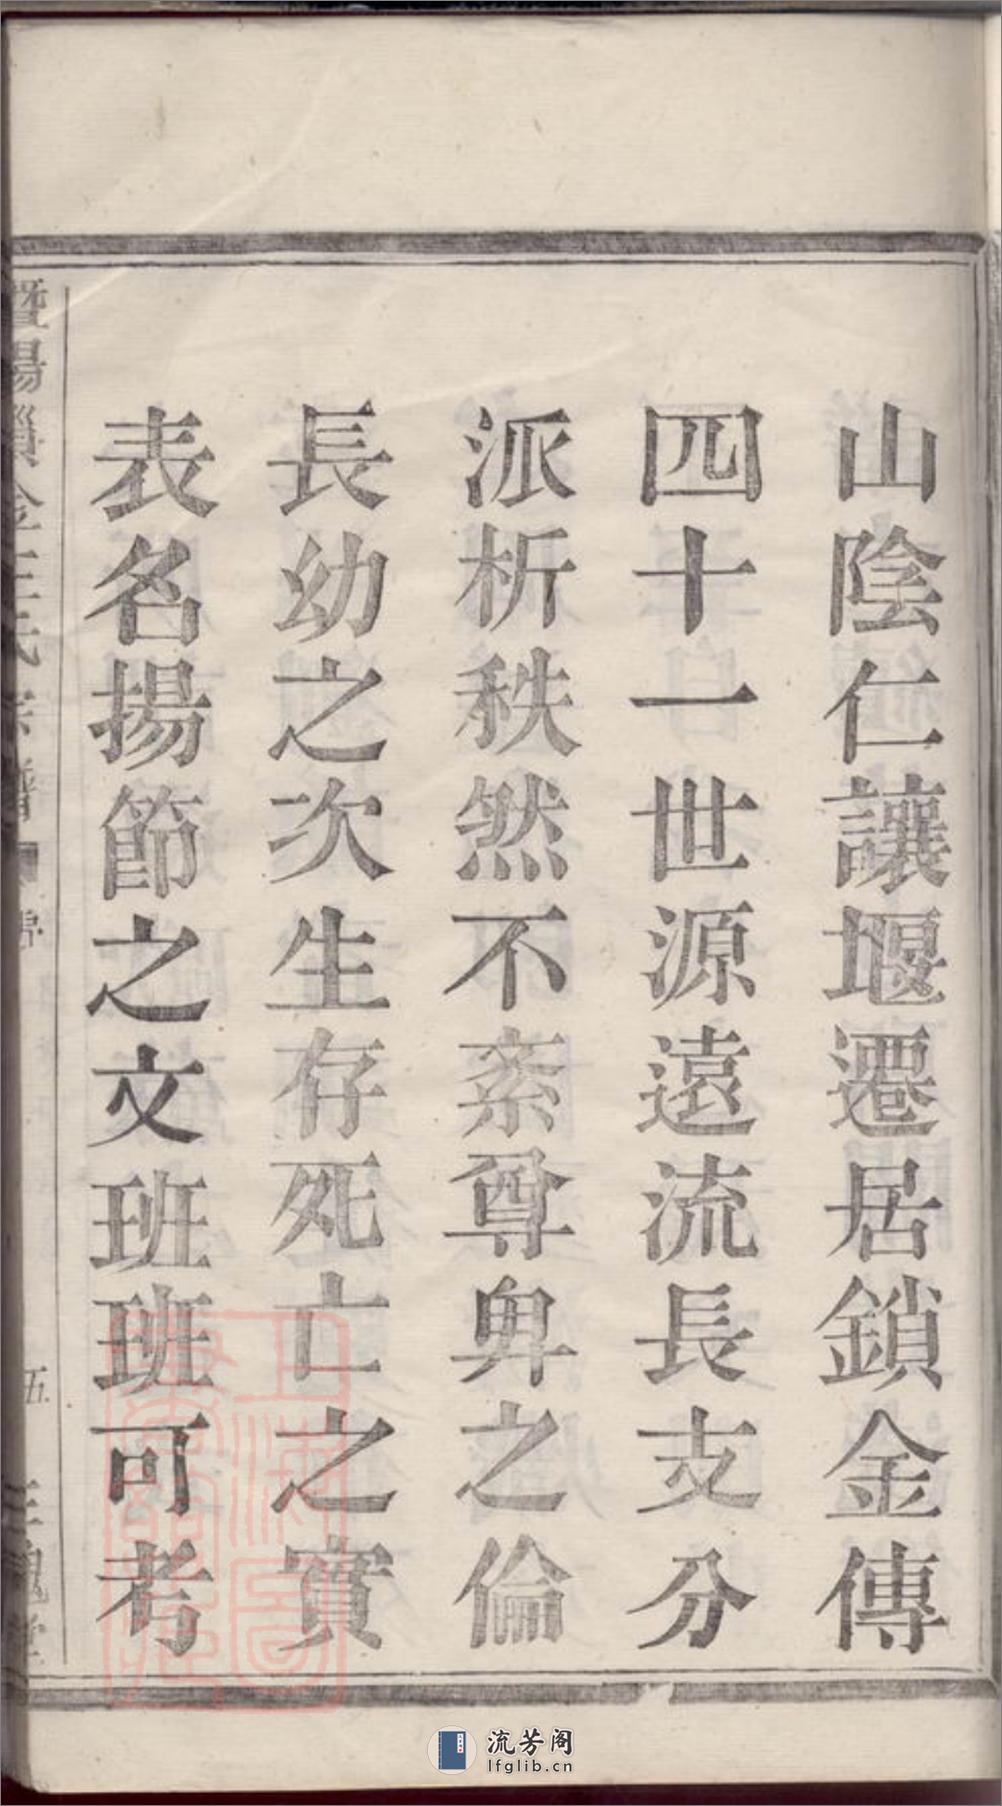 山陰仁讓堰遷居鎖金傳
四十一世源遠流長支分
派析秩然不紊尊卑之倫
長幼之次生存死亡之實
表名揚節之文班班可考
暨陽鎖金王氏宗譜
五
三槐堂
流芳阁
lfglib.cn